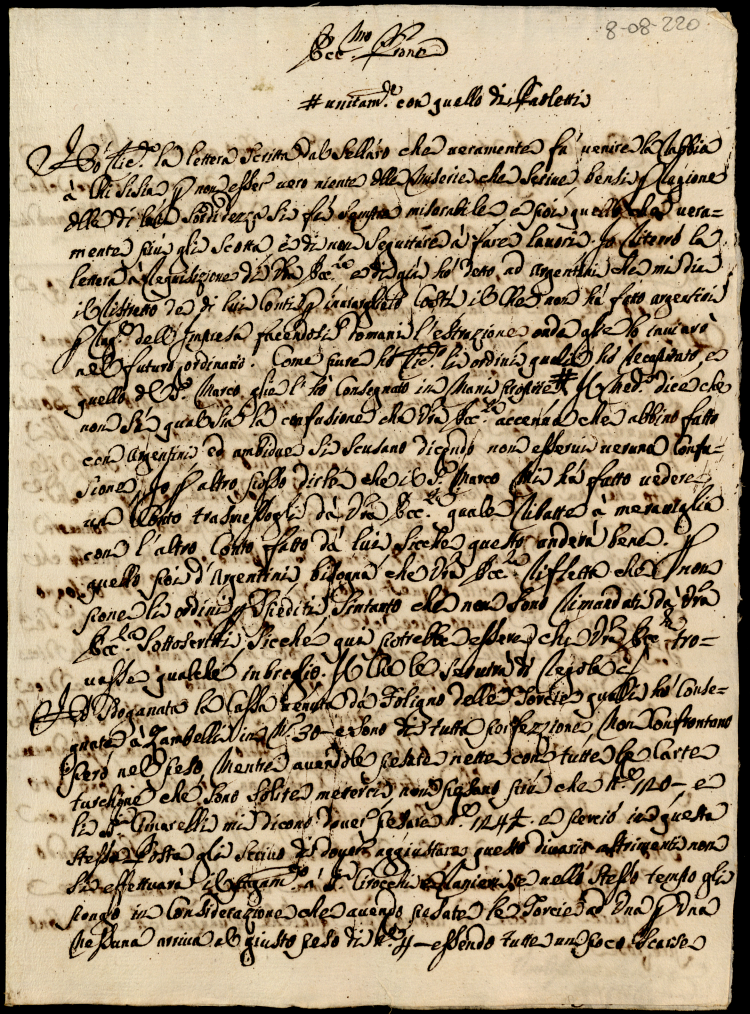 8-08-220
Ecc.mo Prone
# unitam.te con quello di Paoletti
Hò ric.to la lettera scritta dal Sellaro che veramente fà venire la rabbia
à chi sisia p non esser vero niente delle miserie che scrive, bensì p cagione
della di lui sordidezza si fà sempre miserabile e poi quello che vera-
mente più gli scotta è di non seguitare à fare lavori. Io riterrò la
lettera à requisizione di Vra Ecc.za e di già hò detto ad Argentini che mi dia
il ristretto de di lui Conti p il che non hà fatto argentini
p cag.e dell'Impresa facendosi domani l'estrazione onde gle lò inviarò
nel futuro ordinario. Come pure hò ric.to li ordini quali hò recapitato, e
quello del S.r Marco glie l'hò consegnato in mani proprie # Il med.o dice che
non sà qual sia la confusione che Vra Ecc.za accenna che abbino fatto
con Argentini ed ambidue si scusano dicendo non esservi veruna confu-
sione. Io p altro posso dirle che il S.r Marco mi hà fatto vedere
un Conto trasmessogli dà Vra Ecc.za quale ribatte à meraviglia
con l'altro Conto fatto dà lui sicche questo anderà bene. P
quello poi d'Argentini bisogna che Vra Ecc.za rifletta che non
pone li ordini p spediti sintanto che non sono rimandati dà Vra
Ecc.za sottoscritti, sicche quà potrebbe essere che Vra Ecc.za tro-
vasse qualche imbroglio. Il che le servirà di regola
Hò sdoganata la Cassa venuta dà Foligno delle Torcie quali hò conse-
gnate à Zambelli in N.o 30 e sono di tutta perfezzione, non confrontano
però nel peso mentre avendole pesate nette con tutte le carte
turchine che sono solite metterci, non pesano più che lb. 120 - e
li SS.ri Gimarelli mi dicono dover pesare lb. 124 e perciò in questa
stessa Posta gli scrivo di dover aggiustare questo divario altrimenti non
si effettuarà il pagam.to à SS.ri Cirocchi e Ranieri, e nello stesso tempo gli
pongo in considerazione che avendo pesate le Torcie ad una p una
nessuna arriva al giusto peso di lb. 4 - essendo tutte un poco scarse